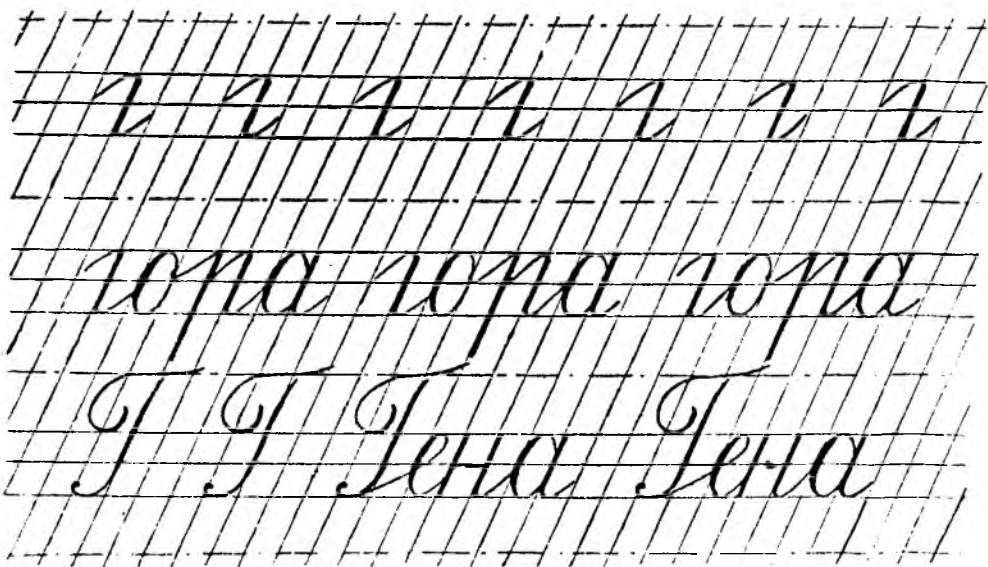 г г г г г г г
гора гора гора
Г Г Гена Гена